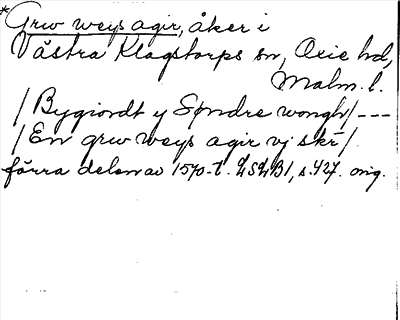 *Grw weys agir, åker i
Västra Klagstorps sn, Oxie hd,
Malm. l.
/ Bygiordt y Søndre wongh / ---
/ En grw weys agir vj skr /.
förra delen av 1570-t. LSLB1, s. 427. orig.